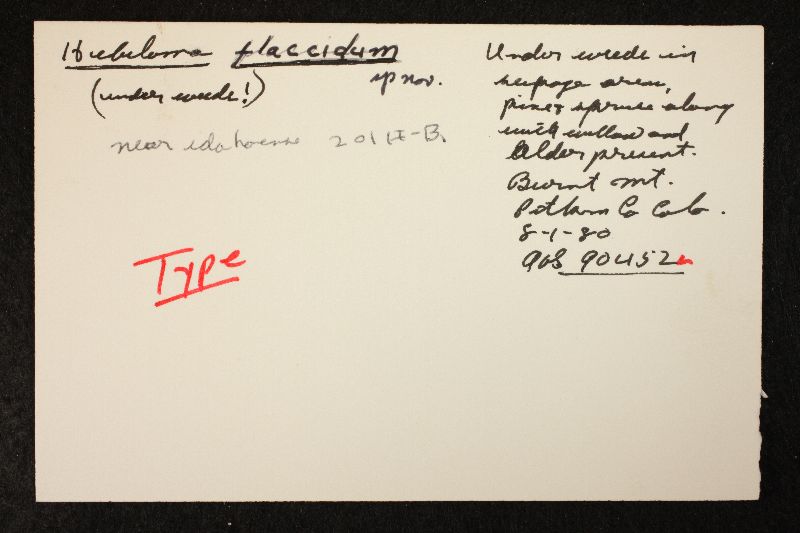 Hebeloma flaccidum
sp nov.
(under weeds!)
near idahoense 201 II-B.
Type
Under weeds in
seepage area,
pine & spruce along
with willow and
Alder present.
Burnt Mt.
Pitkin Co Colo.
8-1-80
AHS 90452